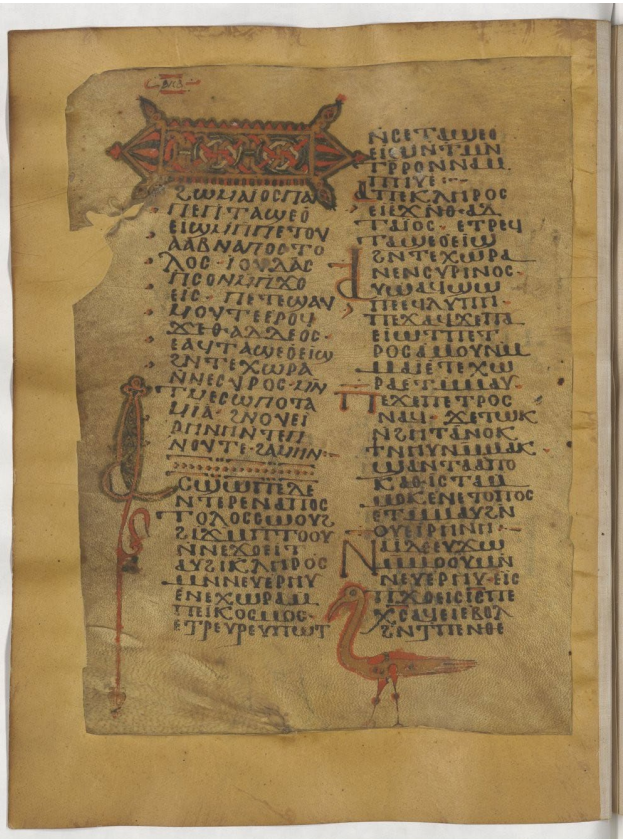 ϨⲰⲘⲀⲒⲞⲤ ⲠⲀ
ⲠⲈⲠⲦⲀϢⲈⲞ
ⲈⲒϢ ⲘⲠⲠⲈⲦⲞⲨ
ⲀⲀⲂ ⲚⲀⲠⲞⲤⲦⲞ
ⲖⲞⲤ· ⲒⲞⲨⲆⲀⲤ
ⲠⲤⲞⲚ ⲘⲠϪⲞ
ⲈⲒⲤ· ⲠⲈⲦⲈϢⲀⲨ
ⲘⲞⲨⲦⲈ ⲈⲢⲞϤ
ϪⲈ ⲐⲀⲆⲆⲈⲞⲤ·
ⲈⲀϤⲦⲀϢⲈⲞⲈⲒϢ
ϨⲚ ⲦⲈⲬⲰⲢⲀ
ⲚⲚⲈⲤⲨⲢⲞⲤ· ⲘⲚ
ⲦⲘⲈⲤⲰⲠⲞⲦⲀ
ⲘⲒⲀ· ϨⲚ ⲞⲨⲈⲒ
ⲢⲎⲚⲎ ⲚⲦⲈⲠ
ⲚⲞⲨⲦⲈ· ϨⲀⲘⲎⲚ:
ⲀⲤϢⲰⲠⲈ ⲆⲈ
ⲚⲦⲈⲢⲈⲚⲀⲠⲞⲤ
ⲦⲞⲖⲞⲤ ⲤⲰⲞⲨϨ
ϨⲒϪⲘ ⲠⲦⲞⲞⲨ
ⲚⲚⲈϪⲞⲈⲒⲦ
ⲀⲨϨⲒⲔⲖⲎⲢⲞⲤ
ⲘⲚ ⲚⲈⲨⲈⲢⲎⲨ
ⲈⲚⲈⲬⲰⲢⲀ Ⲙ
ⲠⲈⲒⲔⲞⲤⲘⲞⲤ·
ⲈⲦⲢⲈⲨⲢⲈⲨⲠⲰⲦ
ⲚⲤⲈⲦⲀϢⲈⲞ
ⲈⲒϢ ⲚⲦⲘⲚ
ⲦⲢⲢⲞ ⲚⲘ
ⲠⲎⲨⲈ:
ⲀⲠⲈⲔⲖⲎⲢⲞⲤ
ⲈⲒ ⲈϪⲚ ⲐⲀⲆ
ⲆⲀⲒⲞⲤ· ⲈⲦⲢⲈϤ
ⲦⲀϢⲈⲞⲈⲒϢ
ϨⲚ ⲦⲈⲬⲰⲢⲀ
ⲚⲚⲈⲚⲤⲨⲢⲒⲚⲞⲤ·
ⲀⲨⲰ ⲀϤϢⲰ
ⲠⲈ ⲈϤⲖⲨⲠⲎ
ⲠⲈϪⲀϤ ϪⲈ ⲠⲀ
ⲈⲒⲰⲦ ⲠⲈⲦ
ⲢⲞⲤ ⲀⲘⲞⲨ ⲚⲘ
ⲘⲀⲒ ⲈⲦⲈⲬⲰ
ⲢⲀ ⲈⲦⲘⲘⲀⲨ·
ⲠⲈϪⲈ ⲠⲈⲦⲢⲞⲤ
ⲚⲀϤ· ϪⲈ ⲦⲰⲔ
ⲚϨⲎⲦ ⲀⲚⲞⲔ
ϮⲚⲎⲨ ⲚⲘⲘⲀⲔ
ϢⲀⲚϮⲀⲠⲞ
ⲔⲀⲐⲒⲤⲦⲀ Ⲙ
ⲘⲞⲔ ⲈⲚⲈⲦⲞⲠⲞⲤ
ⲈⲦⲘⲘⲀⲨ ϨⲚ
ⲞⲨⲈⲒⲢⲎⲚⲎ:
ⲚⲀⲒ ⲆⲈ ⲈⲨϪⲰ
ⲘⲘⲞⲞⲨ ⲘⲚ
ⲚⲈⲨⲈⲢⲎⲨ· ⲈⲒⲤ
ⲠϪⲞⲈⲒⲤ ⲒⲤ ⲠⲈ
ⲬⲤ ⲀϤⲈⲒ ⲈⲂⲞⲖ
ϨⲚ ⲦⲠⲈ ⲚⲐⲈ